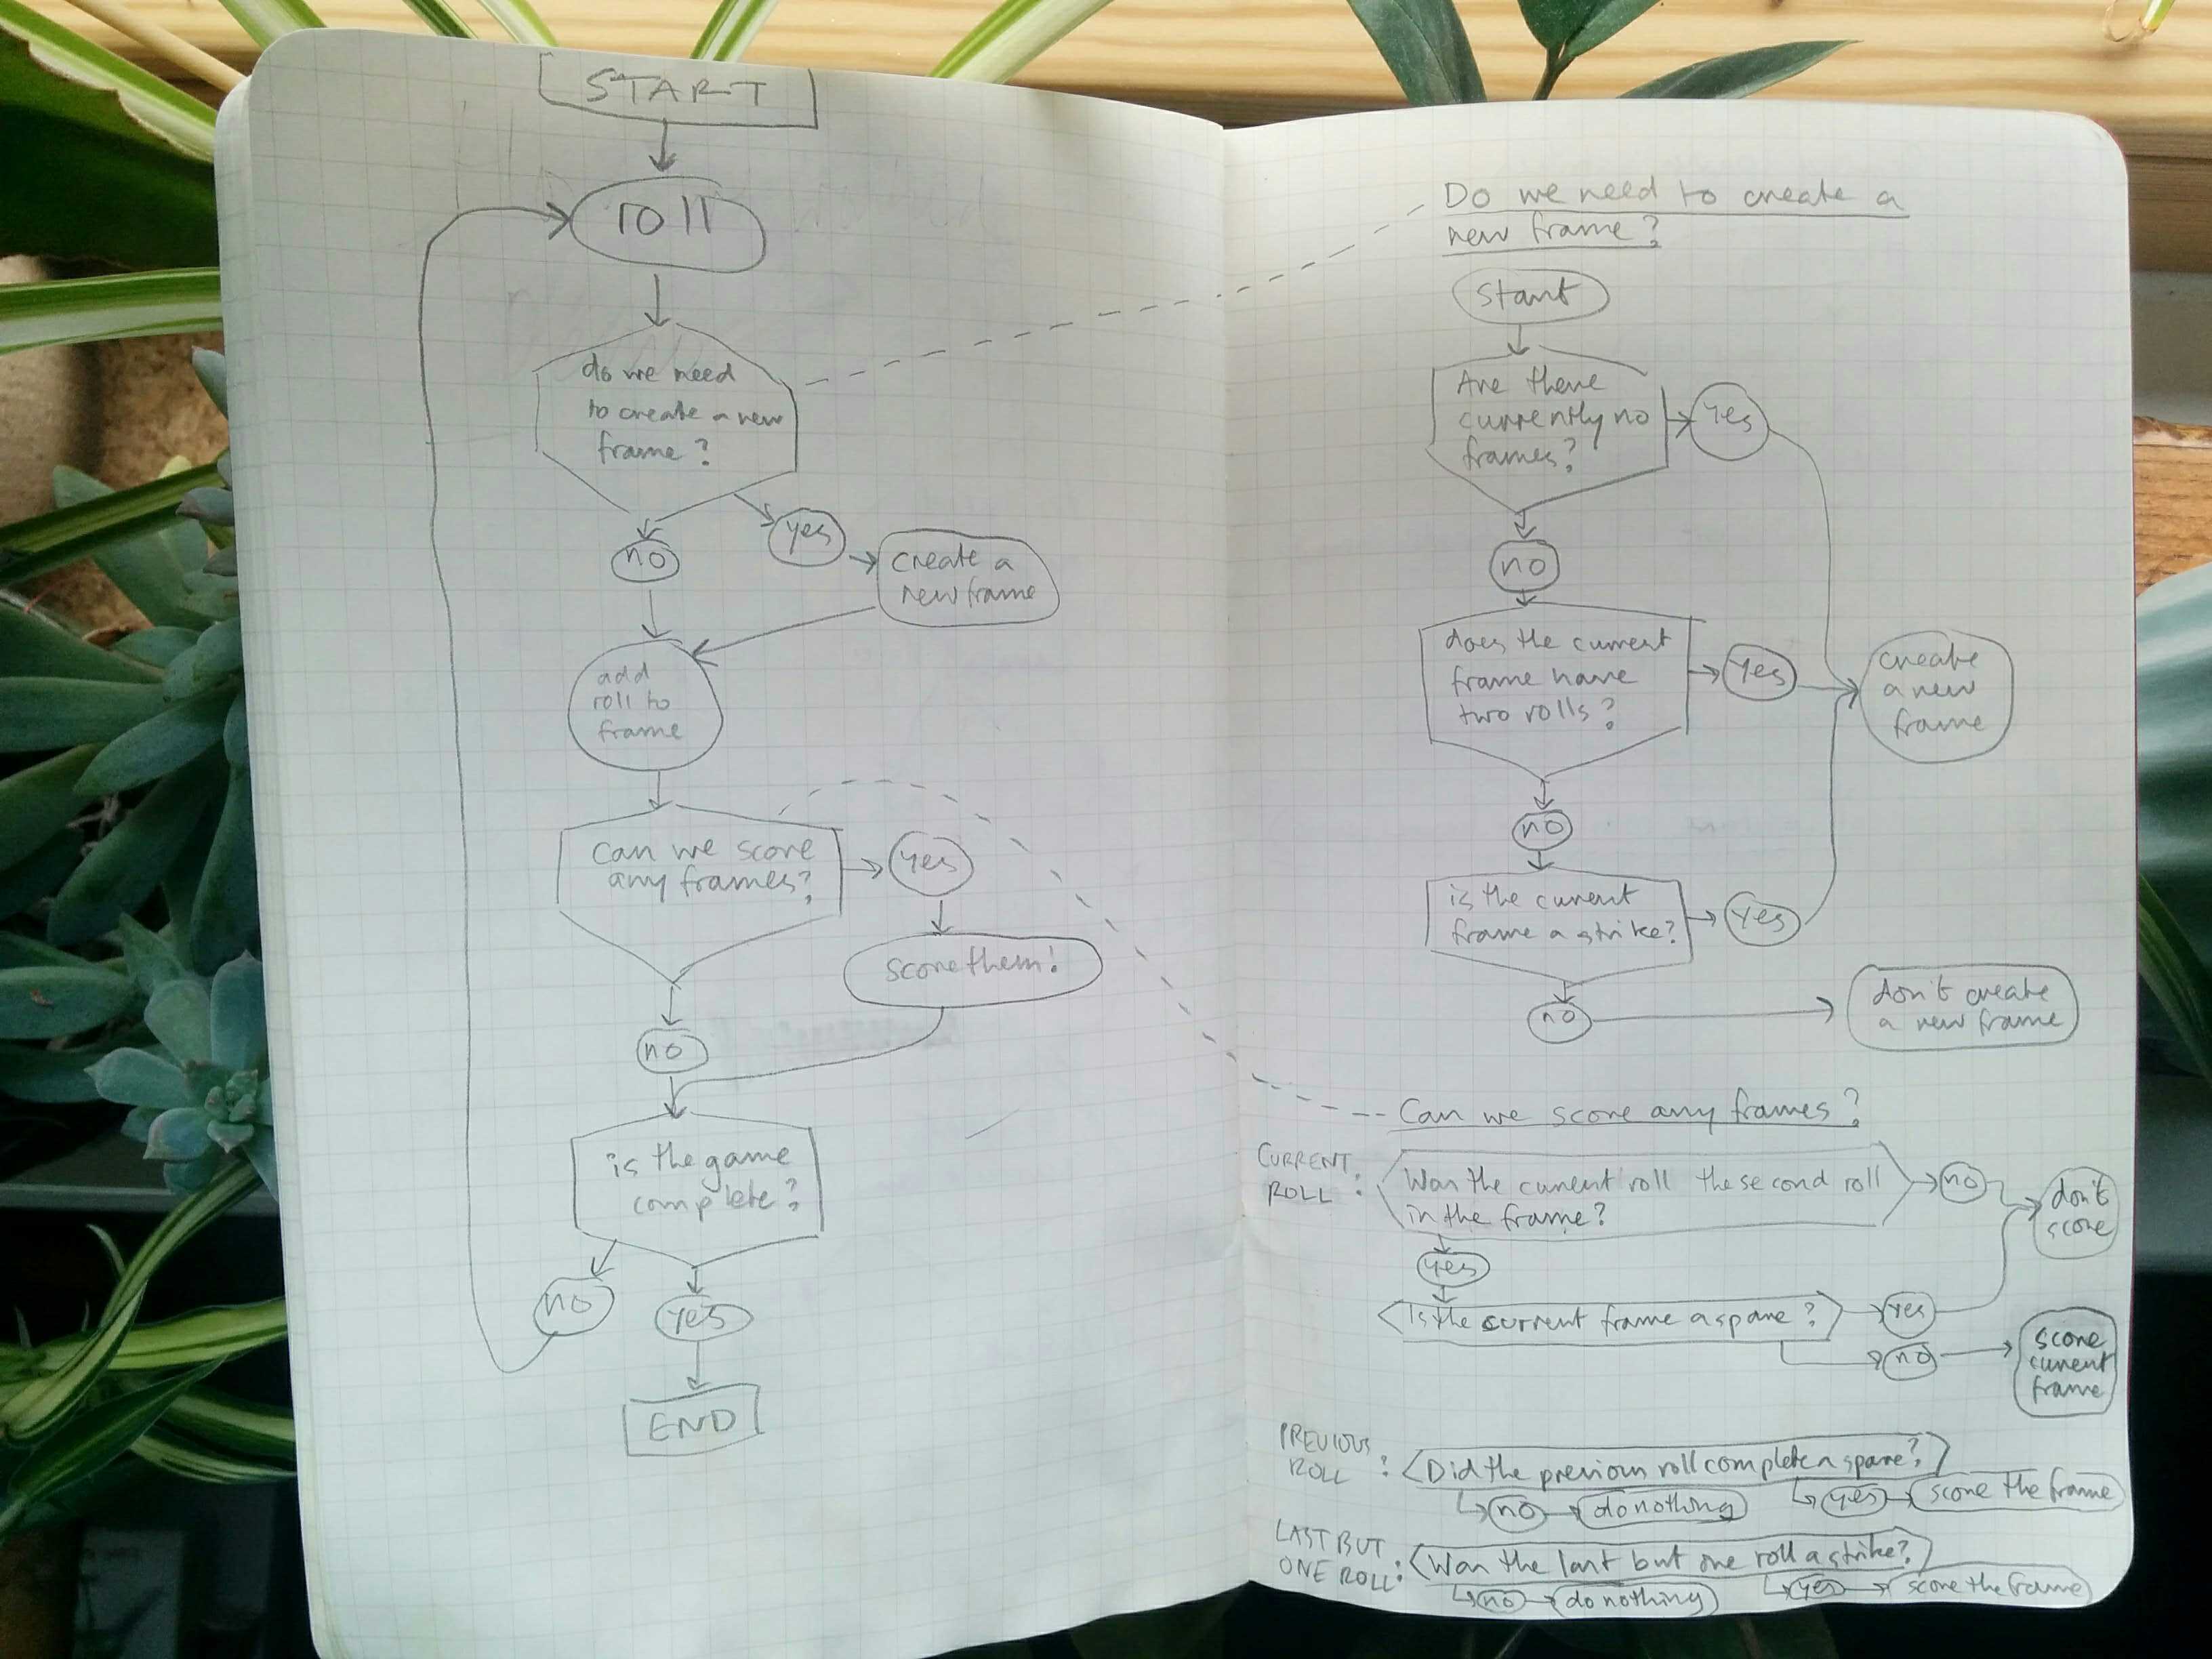 START
roll
do we need
to create a new
frame?
no
yes
create a
new frame
add
roll to
frame
can we score
any frames?
yes
score them!
no
is the game
complete?
no
yes
END
Do we need to create a
new frame?
Start
Are there
currently no
frames?
Yes
no
does the current
frame have
two rolls?
Yes
create
a new
frame
no
is the current
frame a strike?
Yes
no
don't create
a new frame
Can we score any frames?
CURRENT
ROLL :
Was the current roll the second roll
in the frame?
no
don't
score
yes
Is the current frame a spare?
yes
no
score
current
frame
PREVIOUS
ROLL :
Did the previous roll complete a spare?
no
do nothing
yes
score the frame
LAST BUT
ONE ROLL:
Was the last but one roll a strike?
no
do nothing
yes
score the frame